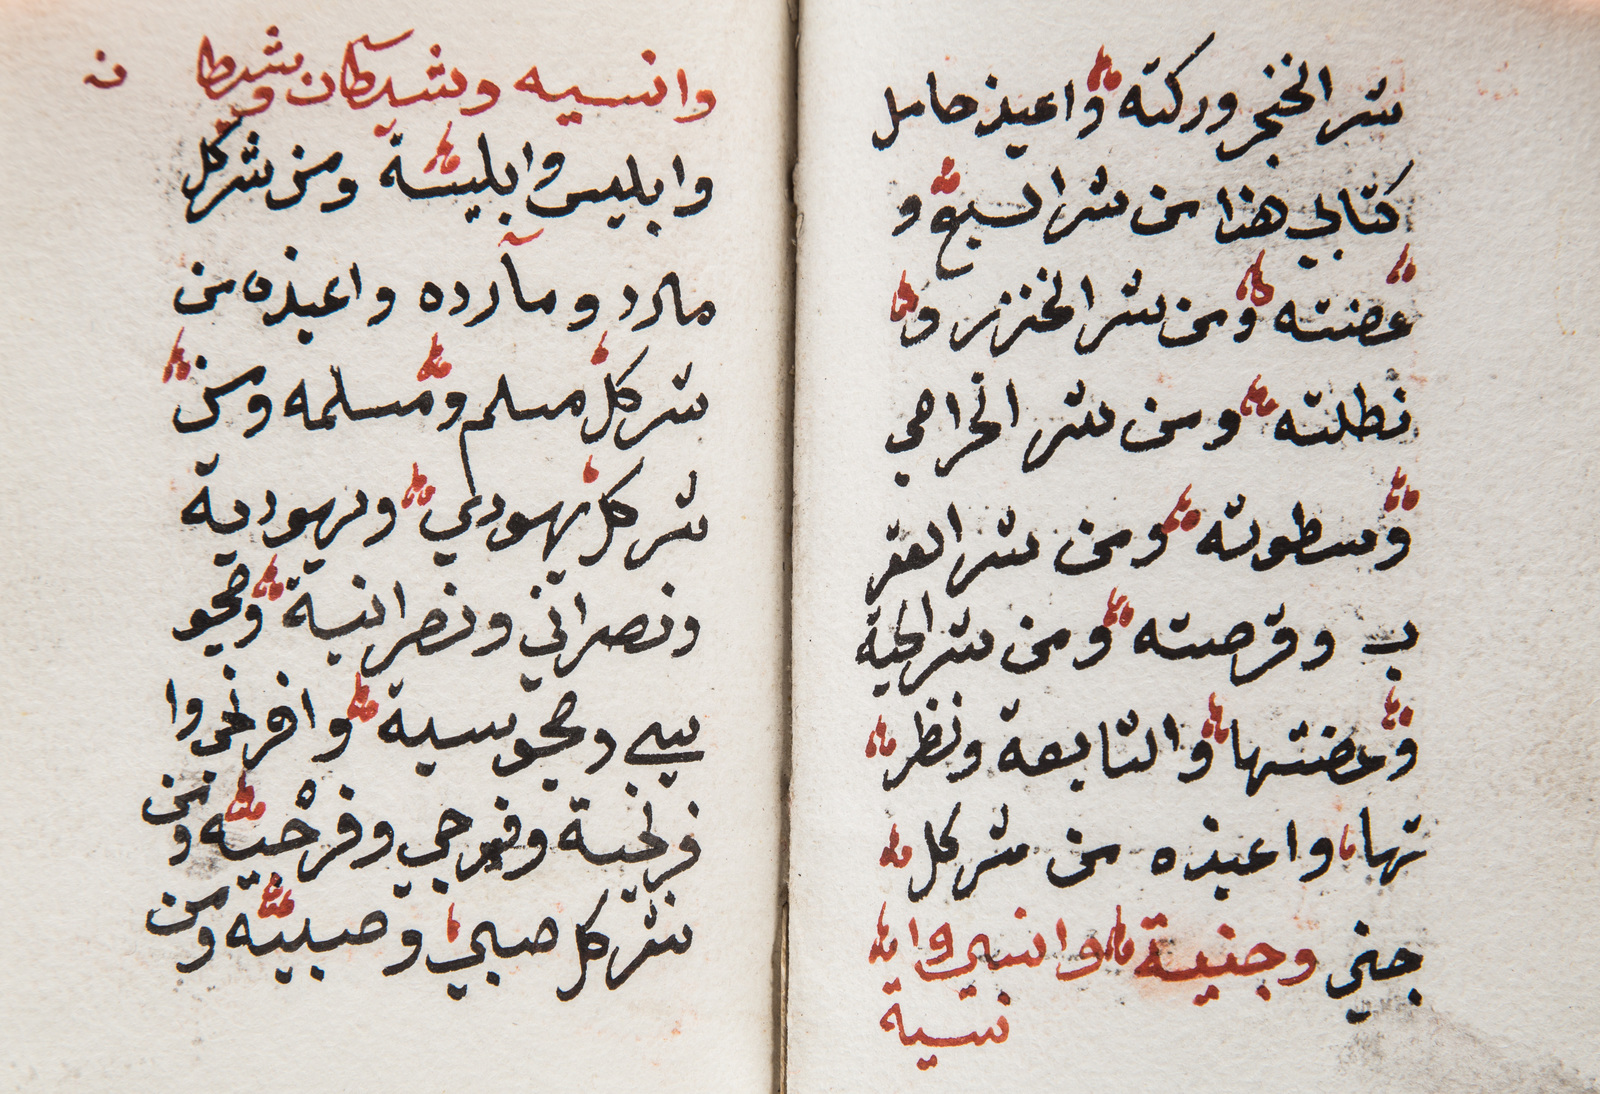 شر الخنجر وركته واعيذ حامل
كتابي هذا من شر السبع و
عضته ومن شر الخنزير و
نطلته ومن شر الحرامي
وسطوته ومن شر العقر
ب وقرصته ومن شر الحية
وعضتها والتابعة ونظر
تها واعيذه من شر كل
جني وجنية وانسي وا
نسية
وانسيه وشيطان وشيطا نه
وابليس وابليسة ومن شر كل
مارد وماردة واعيذه من
شر كل مسلم ومسلمه ومن
شر كل يهودي ويهودية
ونصراني ونصرانية ومجو
سي ومجوسية وافرنجي وا
فرنجية وفرجي وفرجيه ومن
شر كل صبي وصبيه ومن